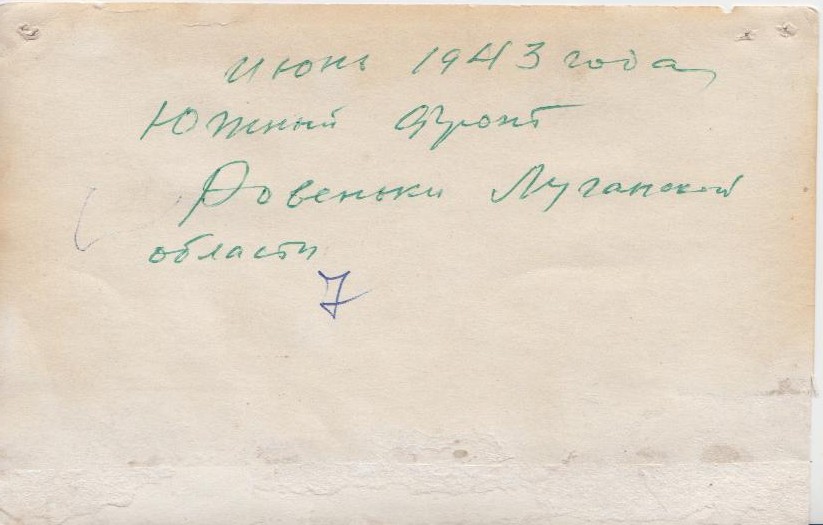 июнь 1943 года,
Южный фронт
Ровеньки Луганской
области
7